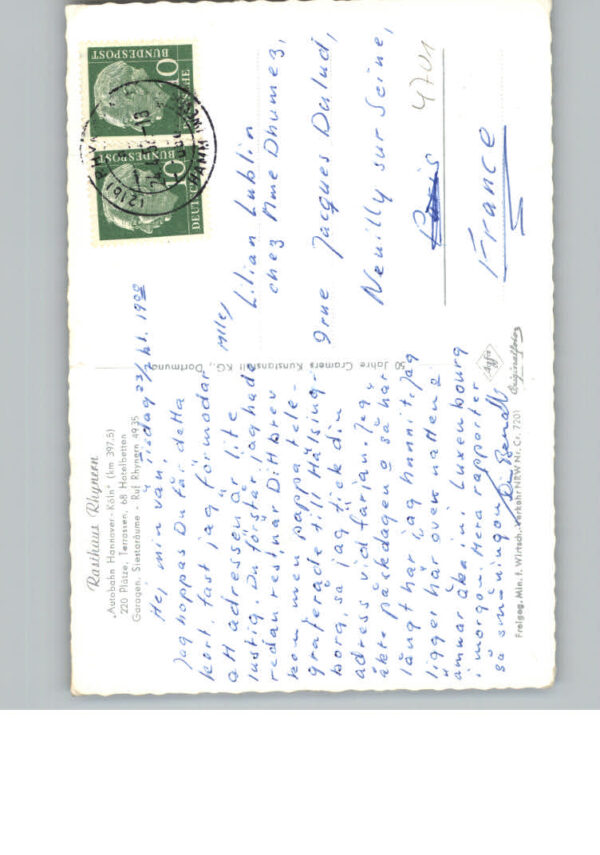 Rasthaus Rhynern
"Autobahn Hannover-Köln" (km 397,5)
220 Plätze, Terrassen, 68 Hotelbetten
Garagen, Siestaräume - Ruf Rhynern 4935
tisdag 23/ kl. 19
Hej min vän!
Jag hoppas Du får detta
kort, fast jag förmodar
att adressen är lite
lustig. Du förstår jag hade
redan rest, när Ditt brev
kom men pappa tele-
graferade till Hälsing-
borg, så jag fick din
adress vid färjan. Jag
åkte påskdagen o så här
långt har jag hunnit. Jag
ligger här över natten o
ämnar åka in i Luxembourg
i morgon. Flera rapporter
så småningom
50 Jahre Cramers Kunstanstalt KG., Dortmund
Agfa
Originalfoto
Freigeg. Min. f. Wirtsch. Verkehr NRW Nr. Cr. 7201
DEUTSCHE BUNDESPOST
10
10
(21b) RHYNERN
Mlle
Lilian Lublin
chez Mme Dhumez,
9 rue Jacques Dulud,
Neuilly sur Seine,
Paris
4701
France